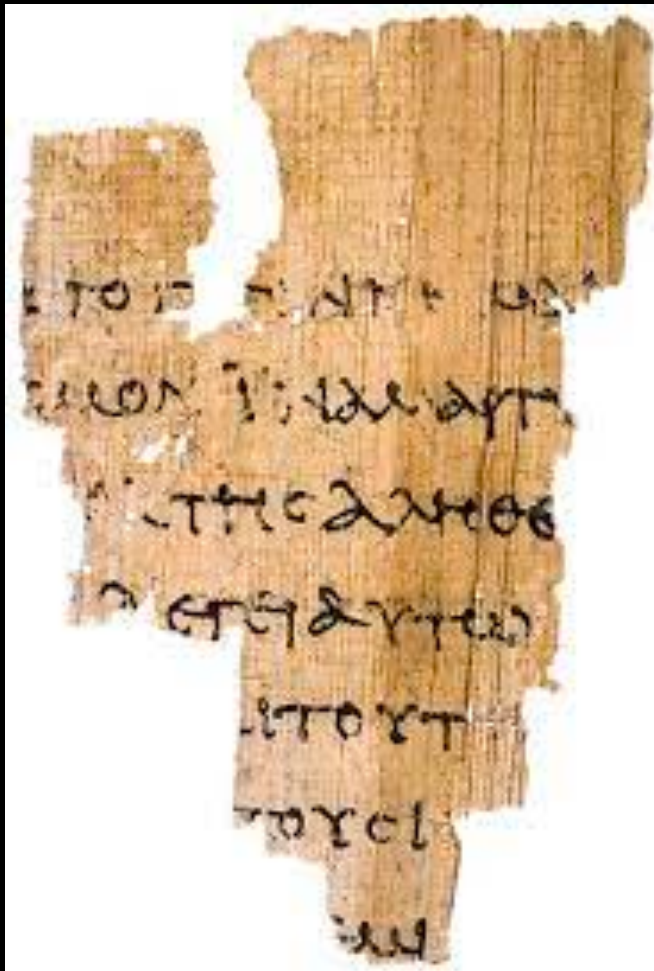 ΤΟ Γ
ϹΜΟΝ ΙΝΑ ΜΑΡΤΥ
ΤΗϹ ΑΛΗΘΕ
ΛΕΓΕΙ ΑΥΤΩ
ΙΤΟΥΤ
ΤΟΥϹΙ
ΜΙ